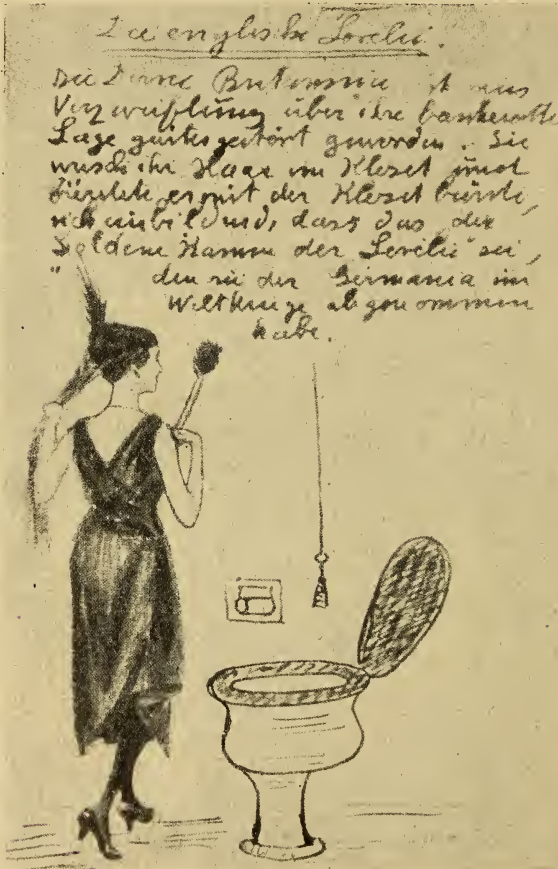 Die englische Lorelei.
Die Dirne Britannia ist aus
Verzweiflung über ihre bankerotte
Lage geistesgestört geworden. Sie
wusch ihr Haar im Kloset und
mit der Klosetbürste,
sich einbildend, dass das „der
Goldene Kamm der Lorelei" sei,
den sie der Germania im
Weltkriege abgenommen
habe.